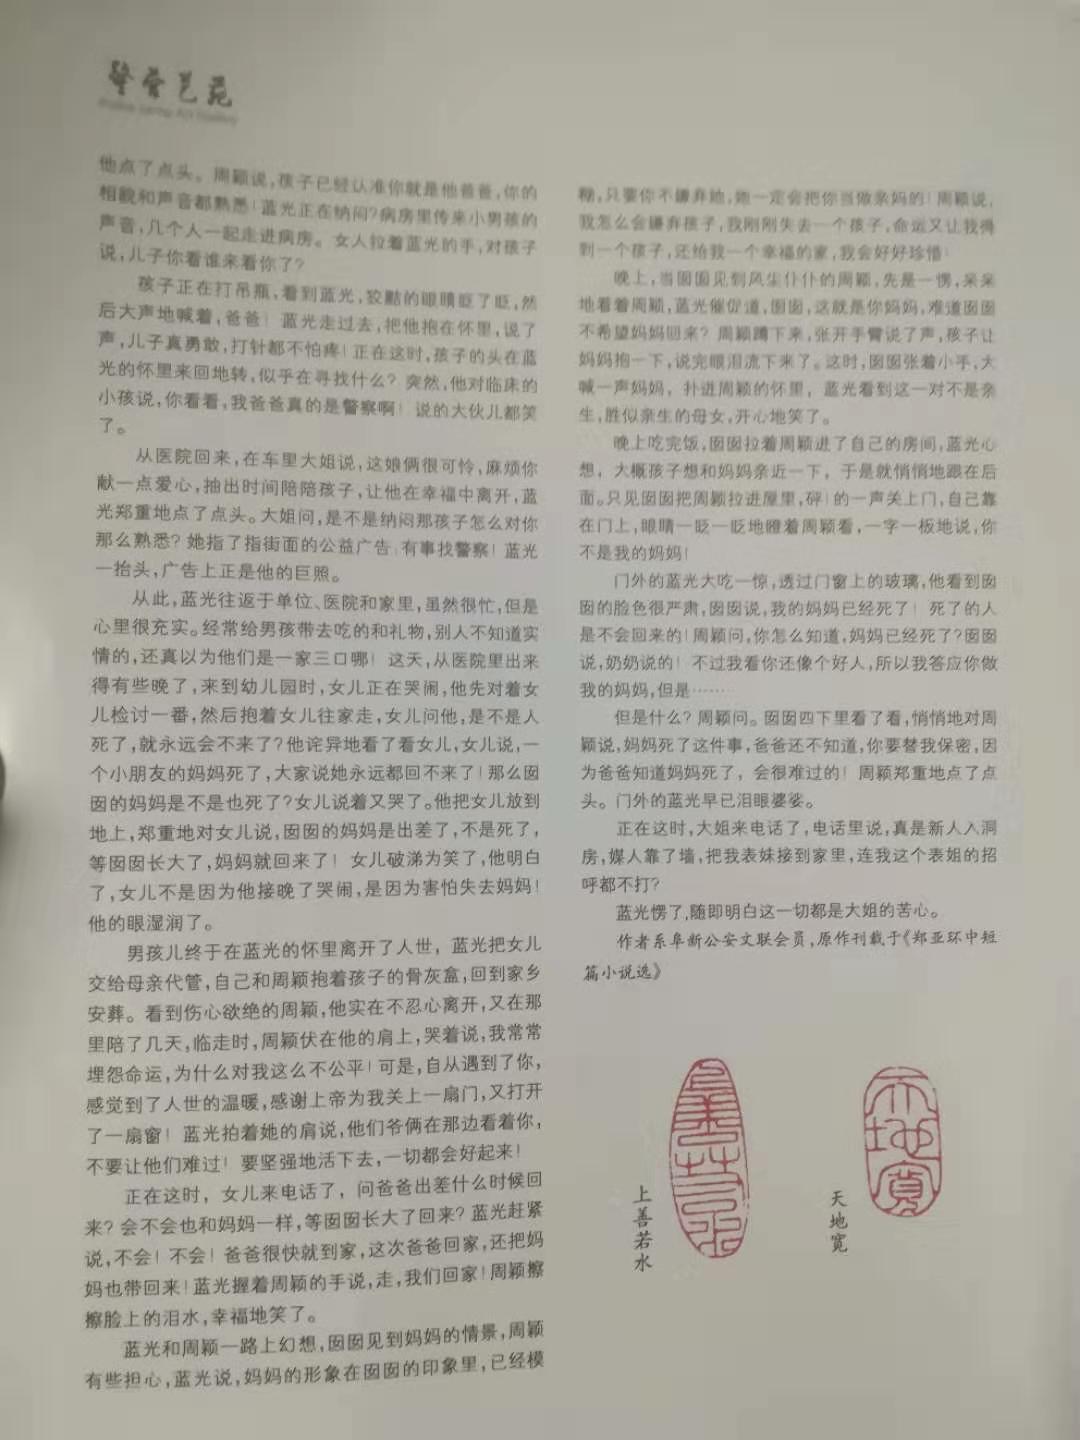 警营艺苑
他点了点头。周颖说,孩子已经认准你就是他爸爸,你的
相貌和声音都熟悉!蓝光正在纳闷?病房里传来小男孩的
声音,几个人一起走进病房。女人拉着蓝光的手,对孩子
说,儿子你看谁来看你了?
孩子正在打吊瓶,看到蓝光,狡黠的眼睛眨了眨,然
后大声地喊着,爸爸!蓝光走过去,把他抱在怀里,说了
声,儿子真勇敢,打针都不怕疼!正在这时,孩子的头在蓝
光的怀里来回地转,似乎在寻找什么?突然,他对临床的
小孩说,你看看,我爸爸真的是警察啊!说的大伙儿都笑
了。
从医院回来,在车里大姐说,这娘俩很可怜,麻烦你
献一点爱心,抽出时间陪陪孩子,让他在幸福中离开,蓝
光郑重地点了点头。大姐问,是不是纳闷那孩子怎么对你
那么熟悉?她指了指街面的公益广告:有事找警察!蓝光
一抬头,广告上正是他的巨照。
从此,蓝光往返于单位、医院和家里,虽然很忙,但是
心里很充实。经常给男孩带去吃的和礼物,别人不知道实
情的,还真以为他们是一家三口哪!这天,从医院里出来
得有些晚了,来到幼儿园时,女儿正在哭闹,他先对着女
儿检讨一番,然后抱着女儿往家走,女儿问他,是不是人
死了,就永远会不来了?他诧异地看了看女儿,女儿说,一
个小朋友的妈妈死了,大家说她永远都回不来了!那么囡
囡的妈妈是不是也死了?女儿说着又哭了。他把女儿放到
地上,郑重地对女儿说,囡囡的妈妈是出差了,不是死了,
等囡囡长大了,妈妈就回来了!女儿破涕为笑了,他明白
了,女儿不是因为他接晚了哭闹,是因为害怕失去妈妈!
他的眼湿润了。
男孩儿终于在蓝光的怀里离开了人世,蓝光把女儿
交给母亲代管,自己和周颖抱着孩子的骨灰盒,回到家乡
安葬。看到伤心欲绝的周颖,他实在不忍心离开,又在那
里陪了几天,临走时,周颖伏在他的肩上,哭着说,我常常
埋怨命运,为什么对我这么不公平!可是,自从遇到了你,
感觉到了人世的温暖,感谢上帝为我关上一扇门,又打开
了一扇窗!蓝光拍着她的肩说,他们爷俩在那边看着你,
不要让他们难过!要坚强地活下去,一切都会好起来!
正在这时,女儿来电话了,问爸爸出差什么时候回
来?会不会也和妈妈一样,等囡囡长大了回来?蓝光赶紧
说,不会!不会!爸爸很快就到家,这次爸爸回家,还把妈
妈也带回来!蓝光握着周颖的手说,走,我们回家!周颖擦
擦脸上的泪水,幸福地笑了。
蓝光和周颖一路上幻想,囡囡见到妈妈的情景,周颖
有些担心,蓝光说,妈妈的形象在囡囡的印象里,已经模
糊,只要你不嫌弃她,她一定会把你当做亲妈的!周颖说,
我怎么会嫌弃孩子,我刚刚失去一个孩子,命运又让我得
到一个孩子,还给我一个幸福的家,我会好好珍惜!
晚上,当囡囡见到风尘仆仆的周颖,先是一愣,呆呆
地看着周颖,蓝光催促道,囡囡,这就是你妈妈,难道囡囡
不希望妈妈回来?周颖蹲下来,张开手臂说了声,孩子让
妈妈抱一下,说完眼泪流下来了。这时,囡囡张着小手,大
喊一声妈妈,扑进周颖的怀里,蓝光看到这一对不是亲
生,胜似亲生的母女,开心地笑了。
晚上吃完饭,囡囡拉着周颖进了自己的房间,蓝光心
想,大概孩子想和妈妈亲近一下,于是就悄悄地跟在后
面。只见囡囡把周颖拉进屋里,砰!的一声关上门,自己靠
在门上,眼睛一眨一眨地瞪着周颖看,一字一板地说,你
不是我的妈妈!
门外的蓝光大吃一惊,透过门窗上的玻璃,他看到囡
囡的脸色很严肃,囡囡说,我的妈妈已经死了!死了的人
是不会回来的!周颖问,你怎么知道,妈妈已经死了?囡囡
说,奶奶说的!不过我看你还像个好人,所以我答应你做
我的妈妈,但是……
但是什么?周颖问。囡囡四下里看了看,悄悄地对周
颖说,妈妈死了这件事,爸爸还不知道,你要替我保密,因
为爸爸知道妈妈死了,会很难过的!周颖郑重地点了点
头。门外的蓝光早已泪眼婆娑。
正在这时,大姐来电话了,电话里说,真是新人入洞
房,媒人靠了墙,把我表妹接到家里,连我这个表姐的招
呼都不打?
蓝光愣了,随即明白这一切都是大姐的苦心。
作者系阜新公安文联会员,原作刊载于《郑亚环中短
篇小说选》
上善若水
天地宽